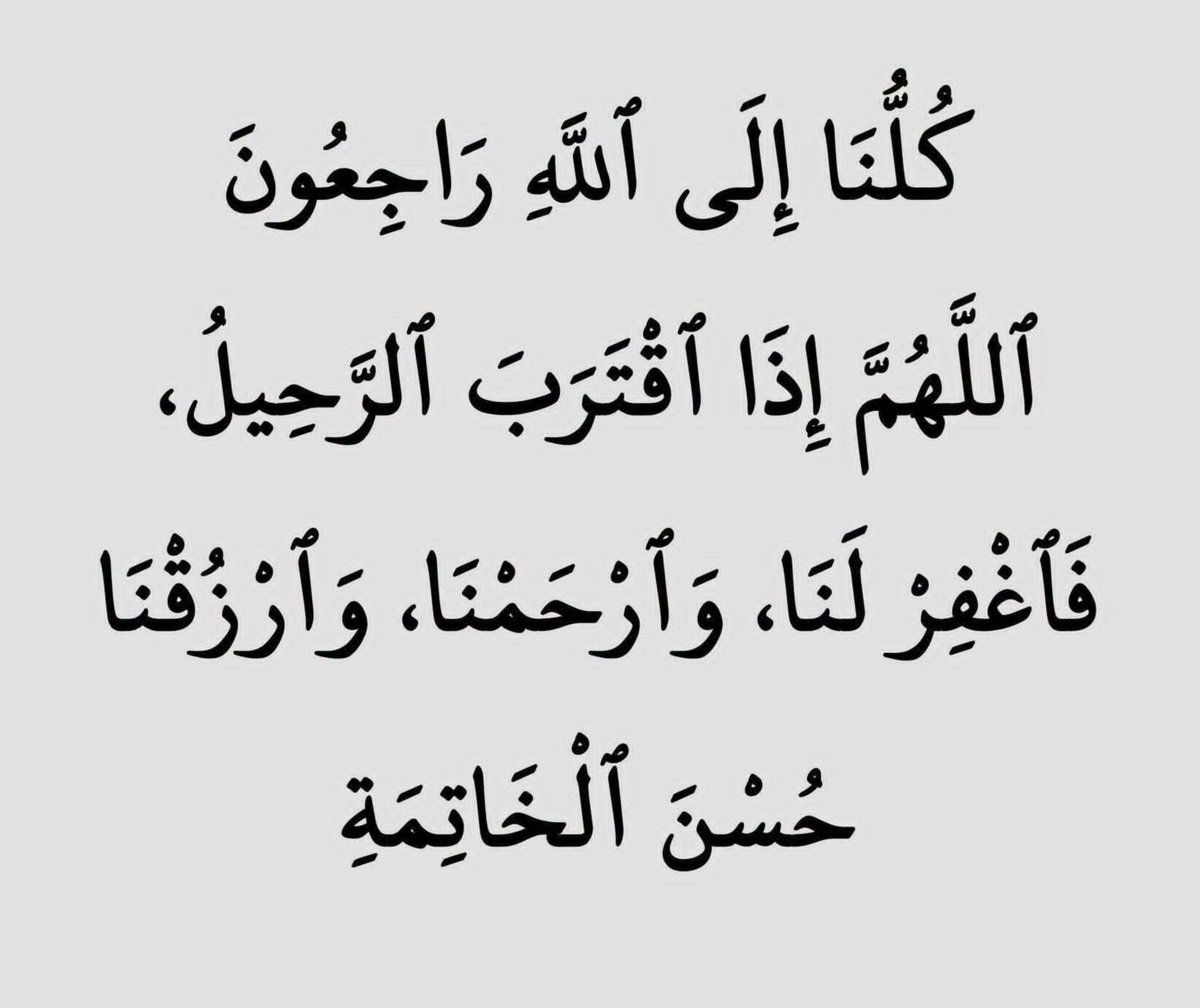 كُلُّنَا إِلَى ٱللَّهِ رَاجِعُونَ
ٱللَّهُمَّ إِذَا ٱقْتَرَبَ ٱلرَّحِيلُ،
فَٱغْفِرْ لَنَا، وَٱرْحَمْنَا، وَٱرْزُقْنَا
حُسْنَ ٱلْخَاتِمَةِ